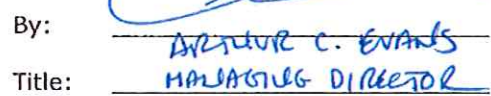 By:
ARTHUR C. EVANS
Title: MANAGING DIRECTOR